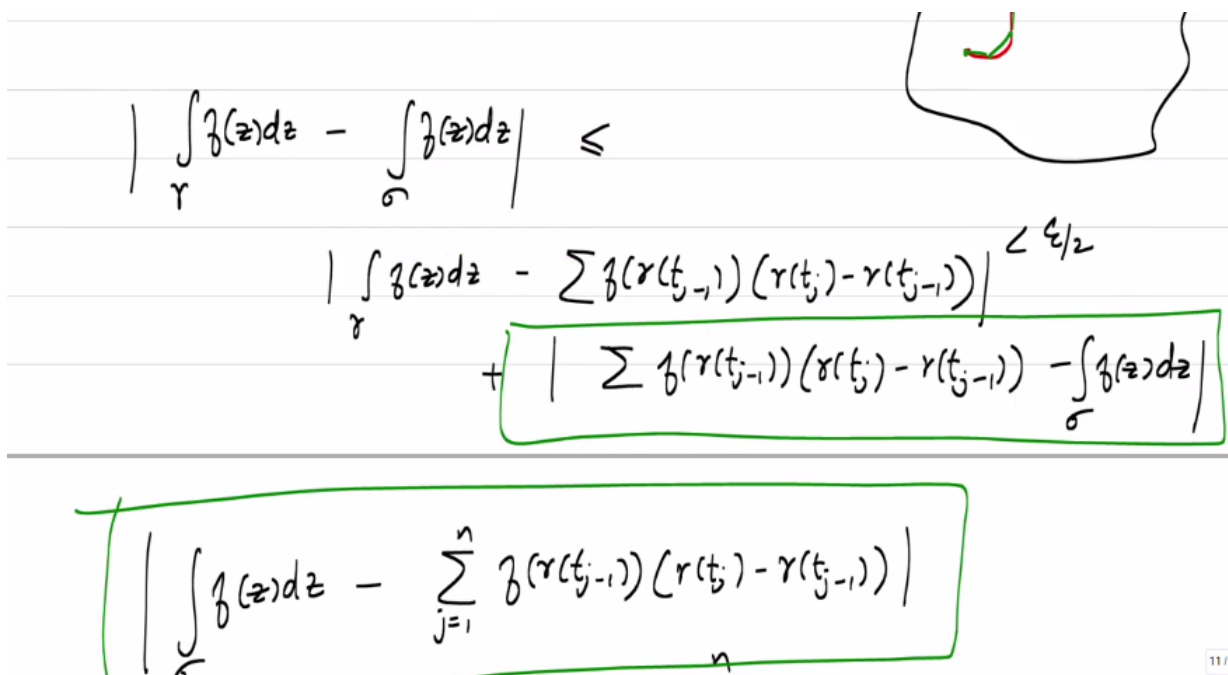 | ∫_γ f(z)dz - ∫_σ f(z)dz | ≤
| ∫_γ f(z)dz - ∑ f(γ(t_{j-1}))(γ(t_j) - γ(t_{j-1})) | < ε/2
+ | ∑ f(γ(t_{j-1}))(γ(t_j) - γ(t_{j-1})) - ∫_σ f(z)dz |
| ∫_σ f(z)dz - ∑_{j=1}^{n} f(γ(t_{j-1}))(γ(t_j) - γ(t_{j-1})) |
n
11/